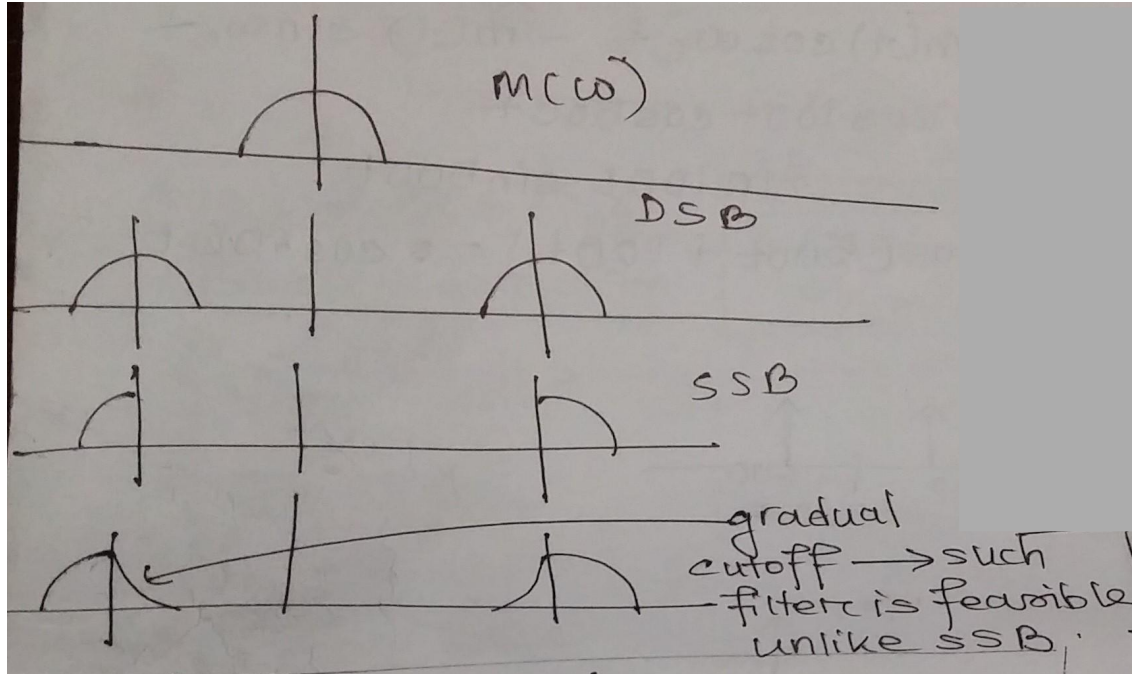 M(ω)
DSB
SSB
gradual
cutoff → such
filter is feasible
unlike SSB.